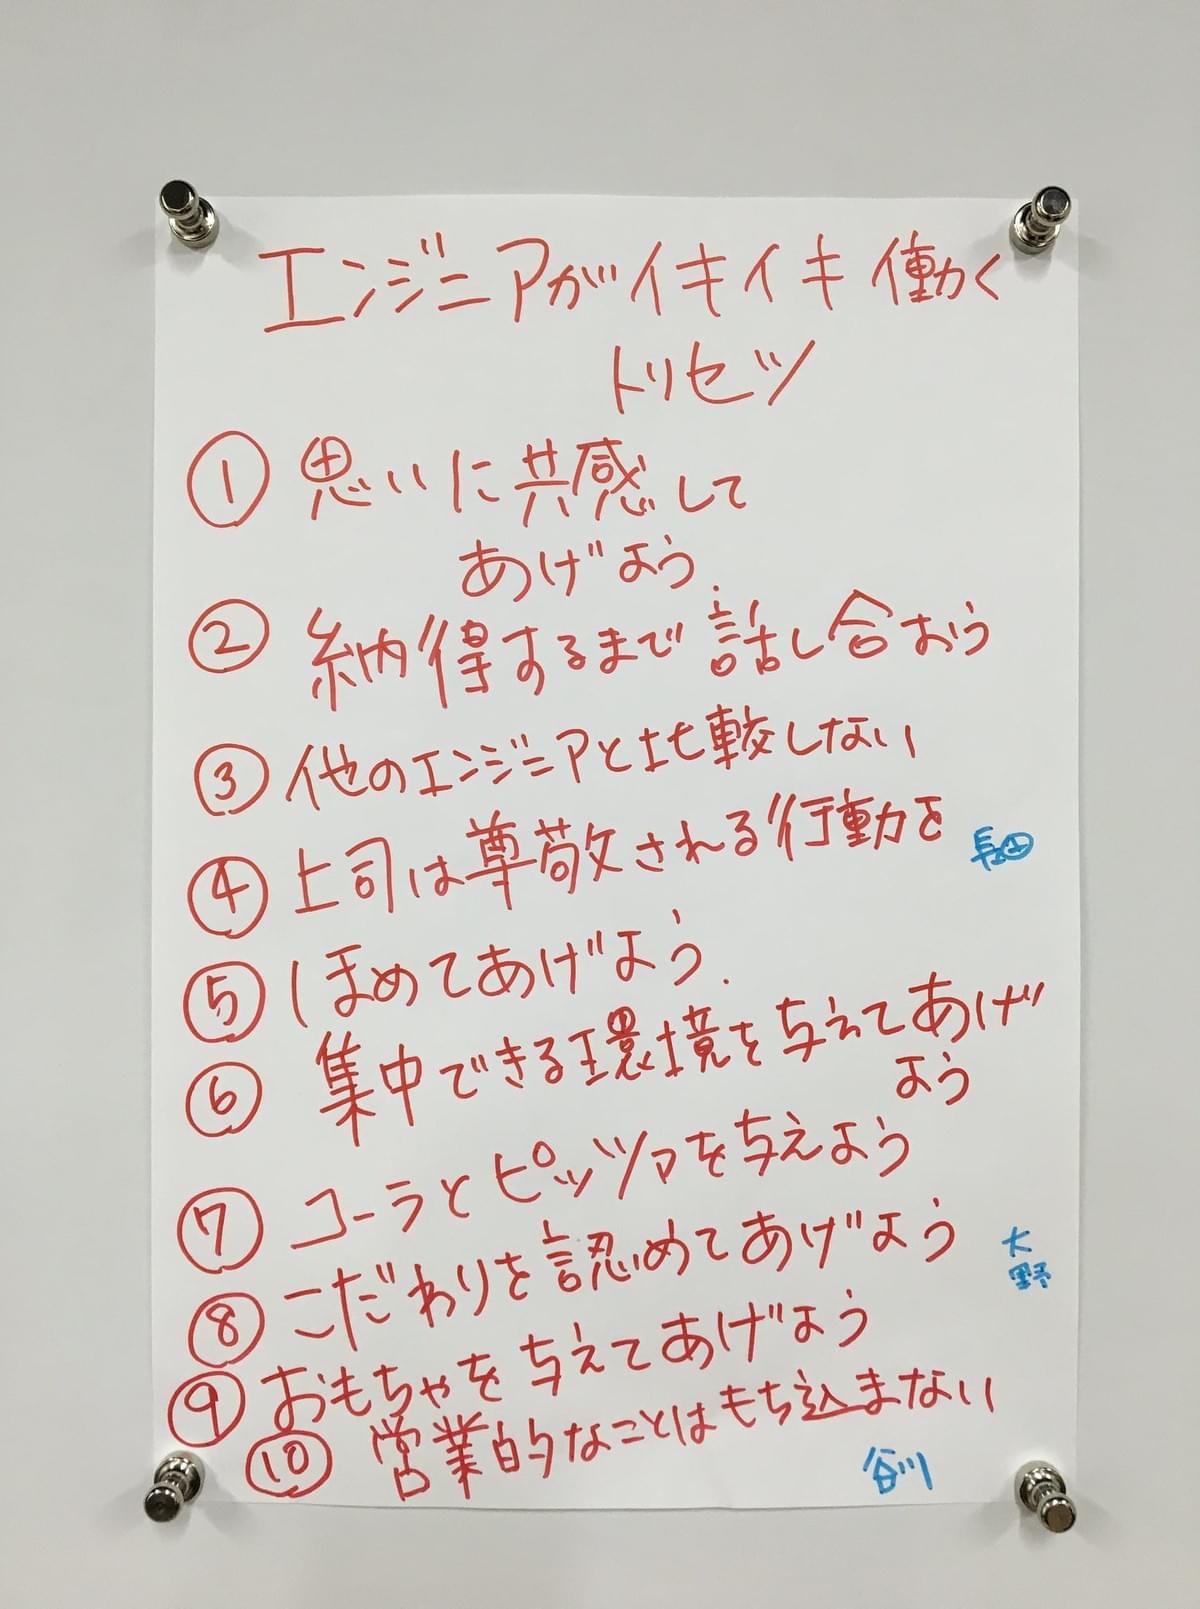 エンジニアがイキイキ働く
トリセツ
① 思いに共感して
あげよう.
② 納得するまで話し合おう
③ 他のエンジニアと比較しない
④ 上司は尊敬される行動を
長田
⑤ ほめてあげよう.
⑥ 集中できる環境を与えてあげ
よう
⑦ コーラとピッツァを与えよう
⑧ こだわりを認めてあげよう
大
野
⑨ おもちゃを与えてあげよう
⑩ 営業的なことはもち込まない
谷川